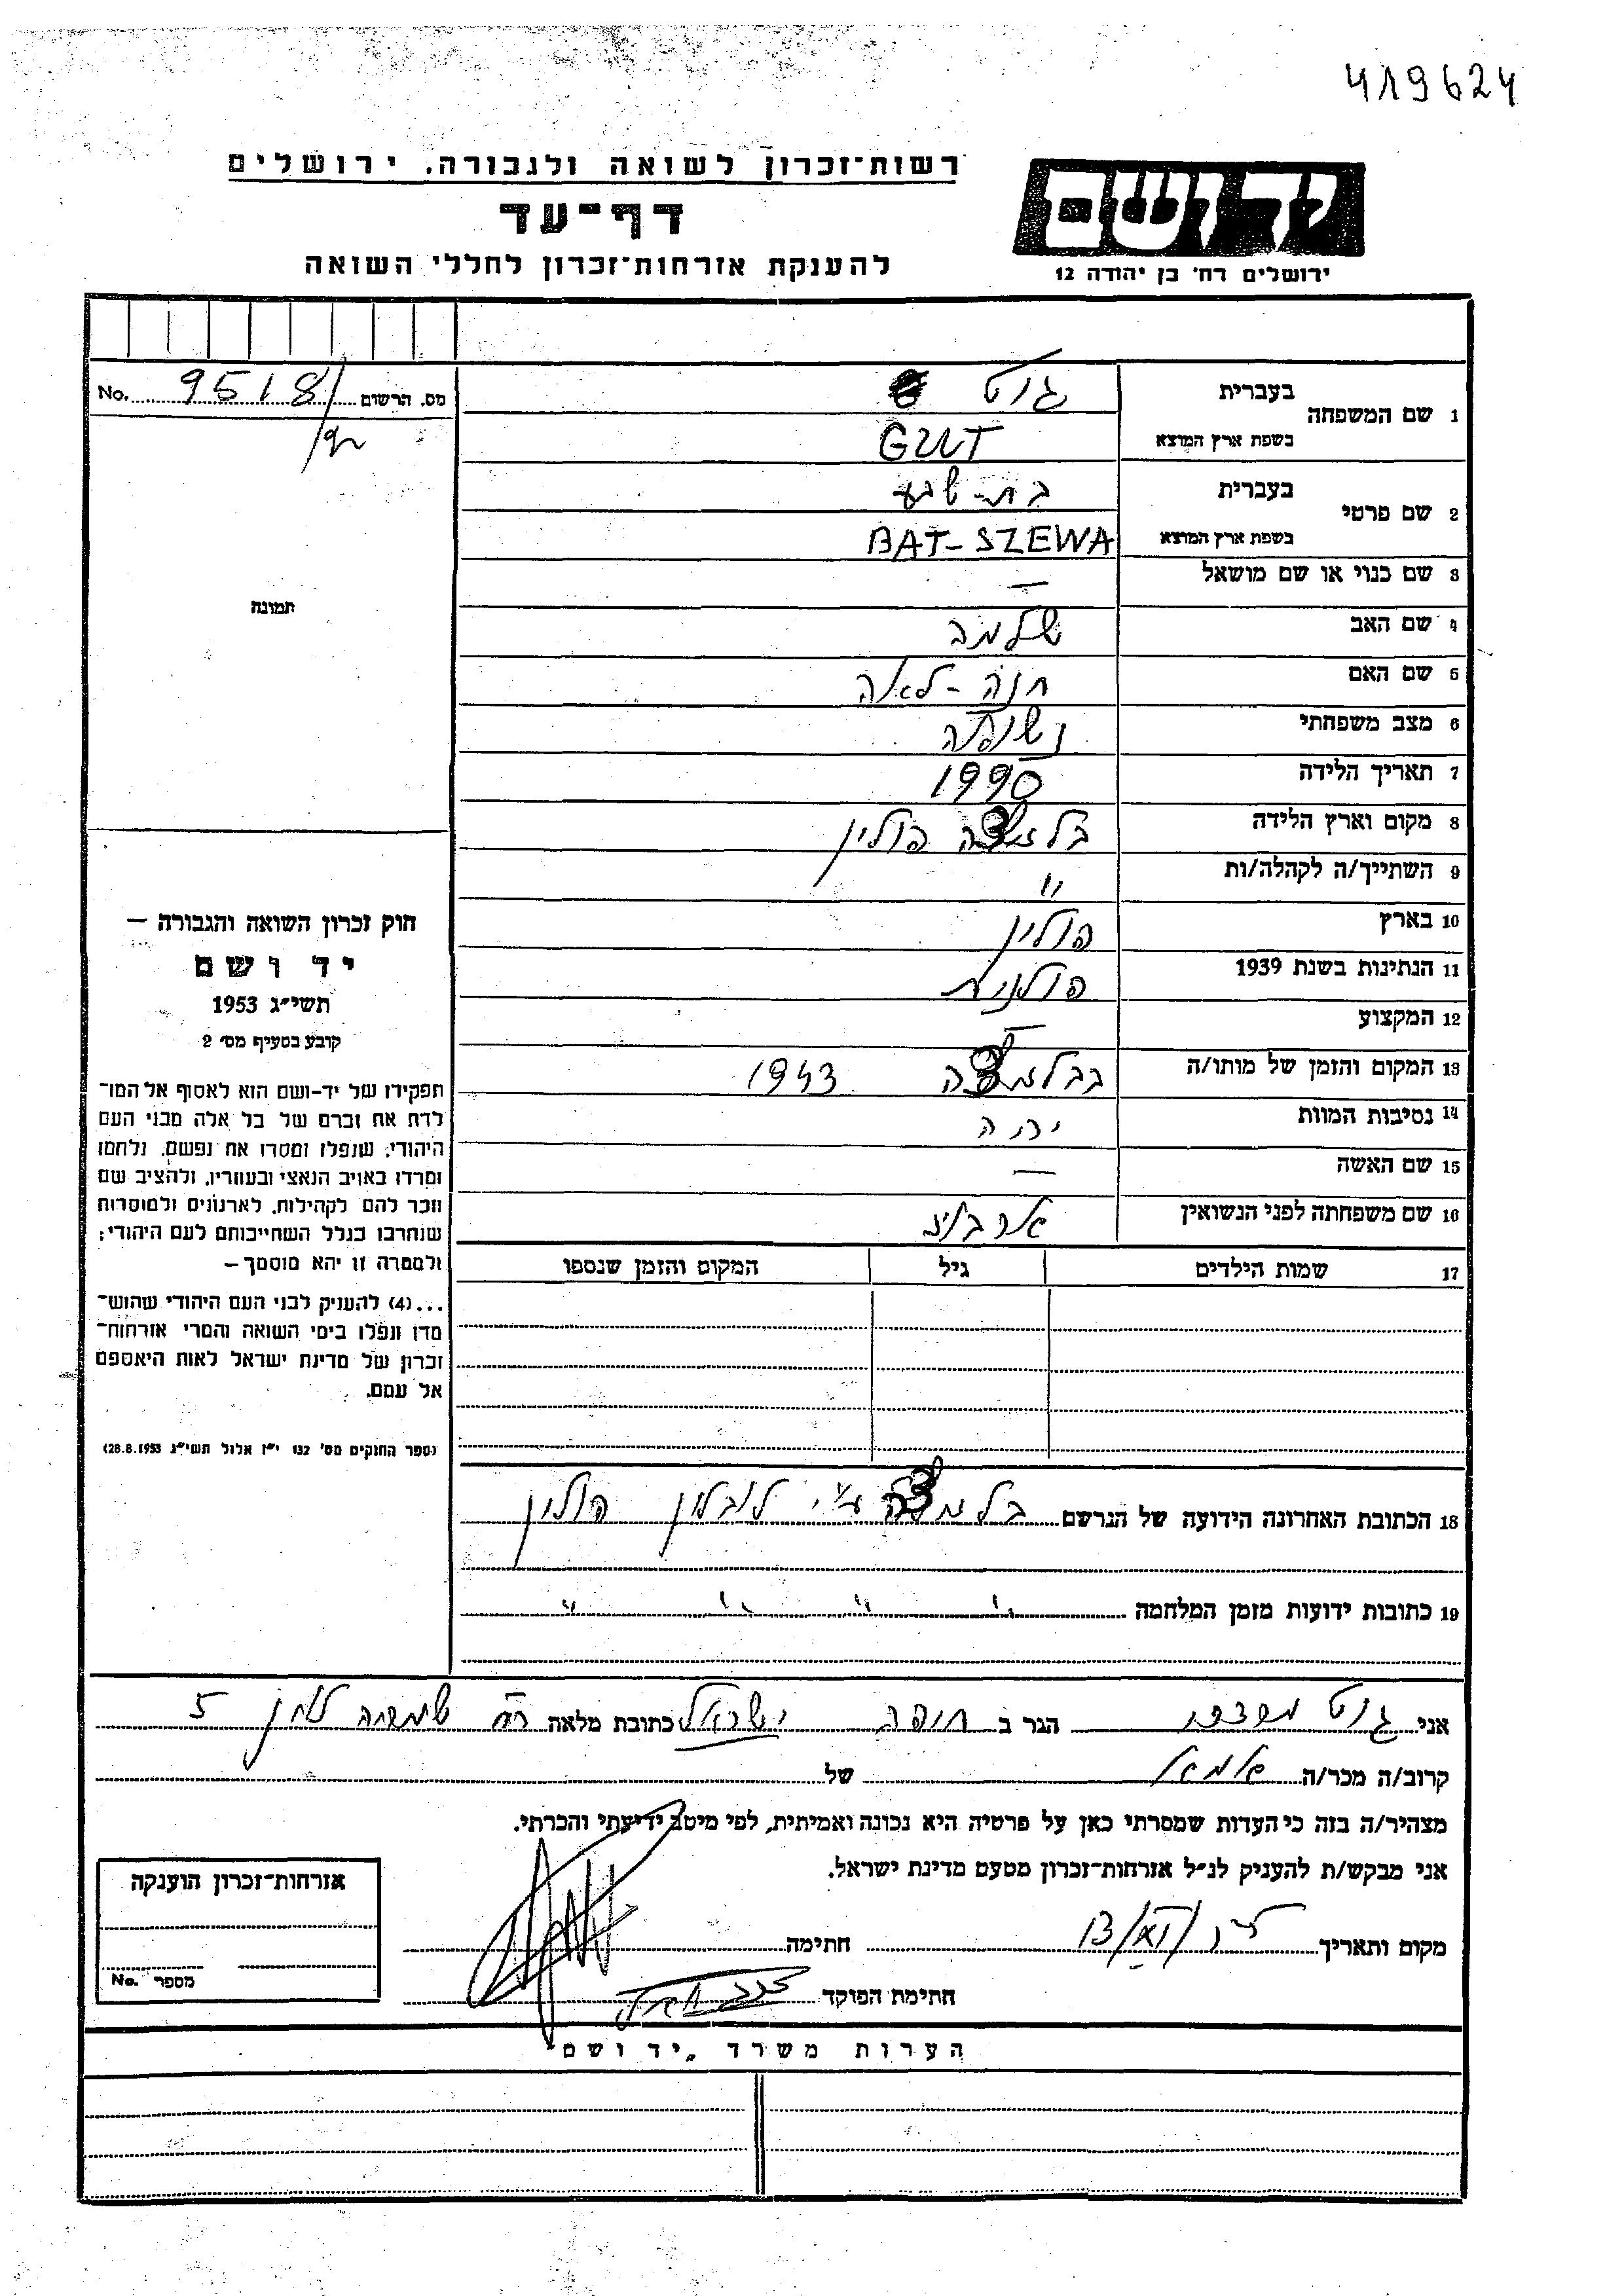 419624
יד ושם
ירושלים רח' בן יהודה 12
רשות־זכרון לשואה ולגבורה, ירושלים
דף־עד
להענקת אזרחות־זכרון לחללי השואה
מס. הרשום 9518/ No.
1 שם המשפחה
בעברית גוט
בשפת ארץ המוצא GUT
2 שם פרטי
בעברית בת-שבע
בשפת ארץ המוצא BAT-SZEWA
3 שם כנוי או שם מושאל —
4 שם האב שלמה
5 שם האם חנה-לאה
6 מצב משפחתי נשואה
7 תאריך הלידה 1990
8 מקום וארץ הלידה פולין
9 השתייך/ה לקהלה/ות "
10 בארץ פולין
11 הנתינות בשנת 1939 פולנית
12 המקצוע —
13 המקום והזמן של מותו/ה 1943
14 נסיבות המוות
15 שם האשה —
16 שם משפחתה לפני הנשואין
17 שמות הילדים גיל המקום והזמן שנספו
18 הכתובת האחרונה הידועה של הנרשם ע"י לובלין פולין
19 כתובות ידועות מזמן המלחמה " " " "
תמונה
חוק זכרון השואה והגבורה —
יד ושם
תשי״ג 1953
קובע בסעיף מס׳ 2
תפקידו של יד-ושם הוא לאסוף אל המו־
לדת את זכרם של כל אלה מבני העם
היהודי, שנפלו ומסרו את נפשם, נלחמו
ומרדו באויב הנאצי ובעוזריו, ולהציב שם
וזכר להם לקהילות, לארגונים ולמוסדות
שנחרבו בגלל השתייכותם לעם היהודי;
ולמטרה זו יהא מוסמך —
...(4) להעניק לבני העם היהודי שהוש־
מדו ונפלו בימי השואה והמרי אזרחות־
זכרון של מדינת ישראל לאות היאספם
אל עמם.
(ספר החוקים מס׳ 132 י״ז אלול תשי״ג 28.8.1953)
אני גוט מרדכי הגר ב חיפה ישראל כתובת מלאה רח 5
קרוב/ה מכר/ה של
מצהיר/ה בזה כי העדות שמסרתי כאן על פרטיה היא נכונה ואמיתית, לפי מיטב ידיעתי והכרתי.
אני מבקש/ת להעניק לנ״ל אזרחות־זכרון מטעם מדינת ישראל.
מקום ותאריך חתימה
חתימת הפוקד
אזרחות־זכרון הוענקה
מספר No.
הערות משרד „יד ושם״